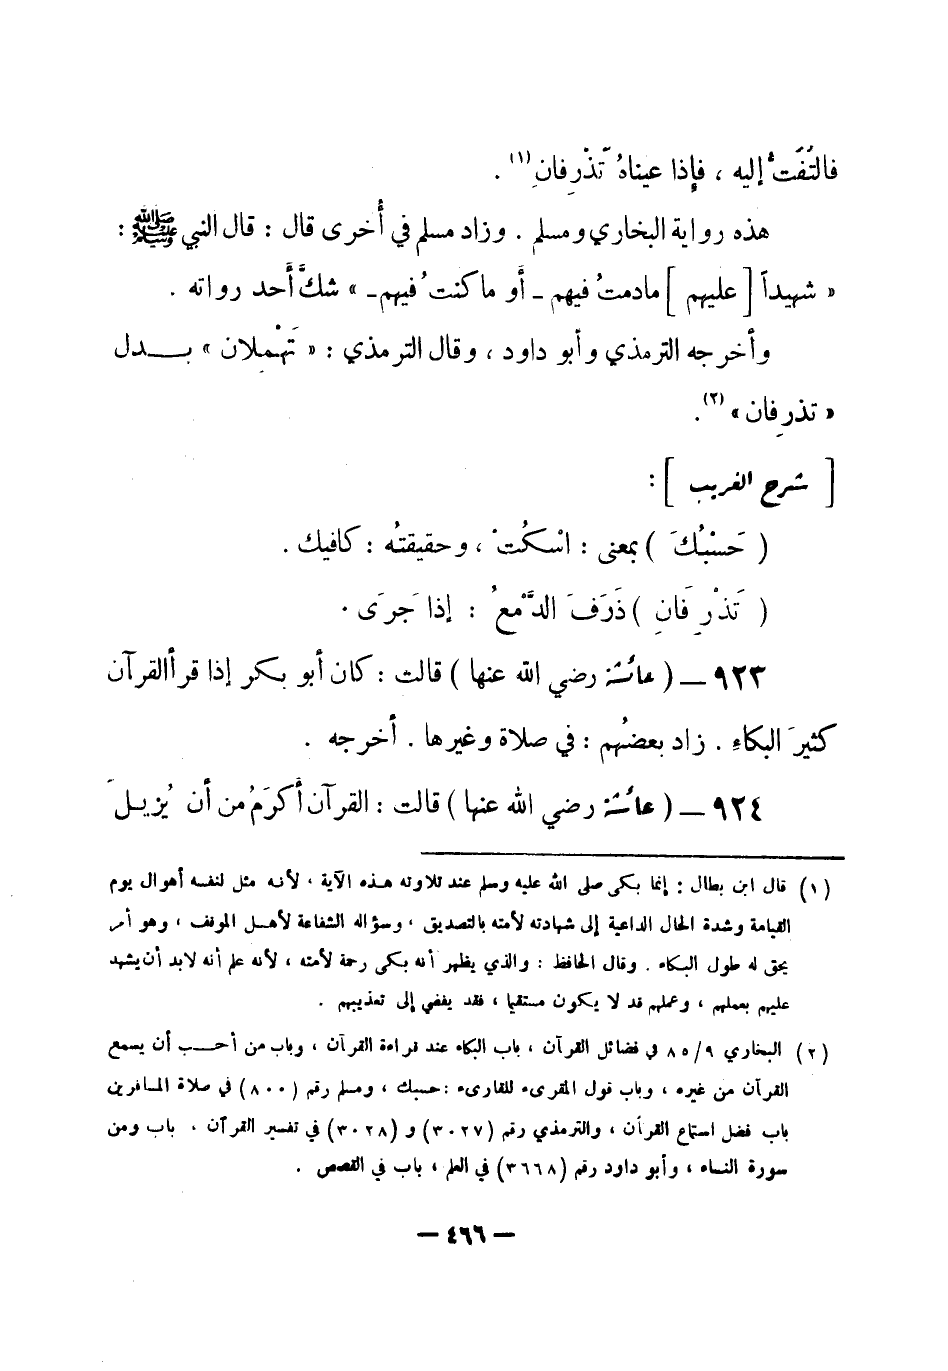 فالتُفَتُّ إليه ، فإِذا عيناهُ تَذْرِفانِ (١) .
هذه رواية البخاري ومسلم . وزاد مسلم في أُخرى قال : قال النبي ﷺ :
« شهيداً [ عليهم ] مادمتُ فيهم ـ أَو ما كنتُ فيهم ـ » شكَّ أَحد رواته .
وأخرجه الترمذي وأبو داود ، وقال الترمذي : « تَهْمِلان » بـــدل
« تذرِفان » (٢) .
[ شرح الغريب ] :
( حَسْبُكَ ) بمعنى : اسْكُتْ ، وحقيقتُه : كافيك .
( تَذْرِفَانِ ) ذَرَفَ الدَّمْعُ : إذا جَرَى .
٩٢٣ ــ ( عائشة رضي الله عنها ) قالت : كان أبو بكر إذا قرأ القرآن
كثيرَ البكاءِ . زاد بعضُهم : في صلاة وغيرها . أخرجه .
٩٢٤ ــ ( عائشة رضي الله عنها ) قالت : القرآن أَكرَمُ من أن يُزِيلَ
(١) قال ابن بطال : إنما بكى صلى الله عليه وسلم عند تلاوته هذه الآية ، لأنه مثل لنفسه أهوال يوم
القيامة وشدة الحال الداعية إلى شهادته لأمته بالتصديق ، وسؤاله الشفاعة لأهل الموقف ، وهو أمر
يحق له طول البكاء . وقال الحافظ : والذي يظهر أنه بكى رحمة لأمته ، لأنه علم أنه لابد أن يشهد
عليهم بعملهم ، وعملهم قد لا يكون مستقيما ، فقد يفضي إلى تعذيبهم .
(٢) البخاري ٩/٨٥ في فضائل القرآن ، باب البكاء عند قراءة القرآن ، وباب من أحب أن يسمع
القرآن من غيره ، وباب قول المقرىء للقارىء : حسبك ، ومسلم رقم (٨٠٠) في صلاة المسافرين
باب فضل استماع القرآن ، والترمذي رقم (٣٠٢٧) و (٣٠٢٨) في تفسير القرآن ، باب ومن
سورة النساء ، وأبو داود رقم (٣٦٦٨) في العلم ، باب في القصص .
ــ ٤٦٦ ــ